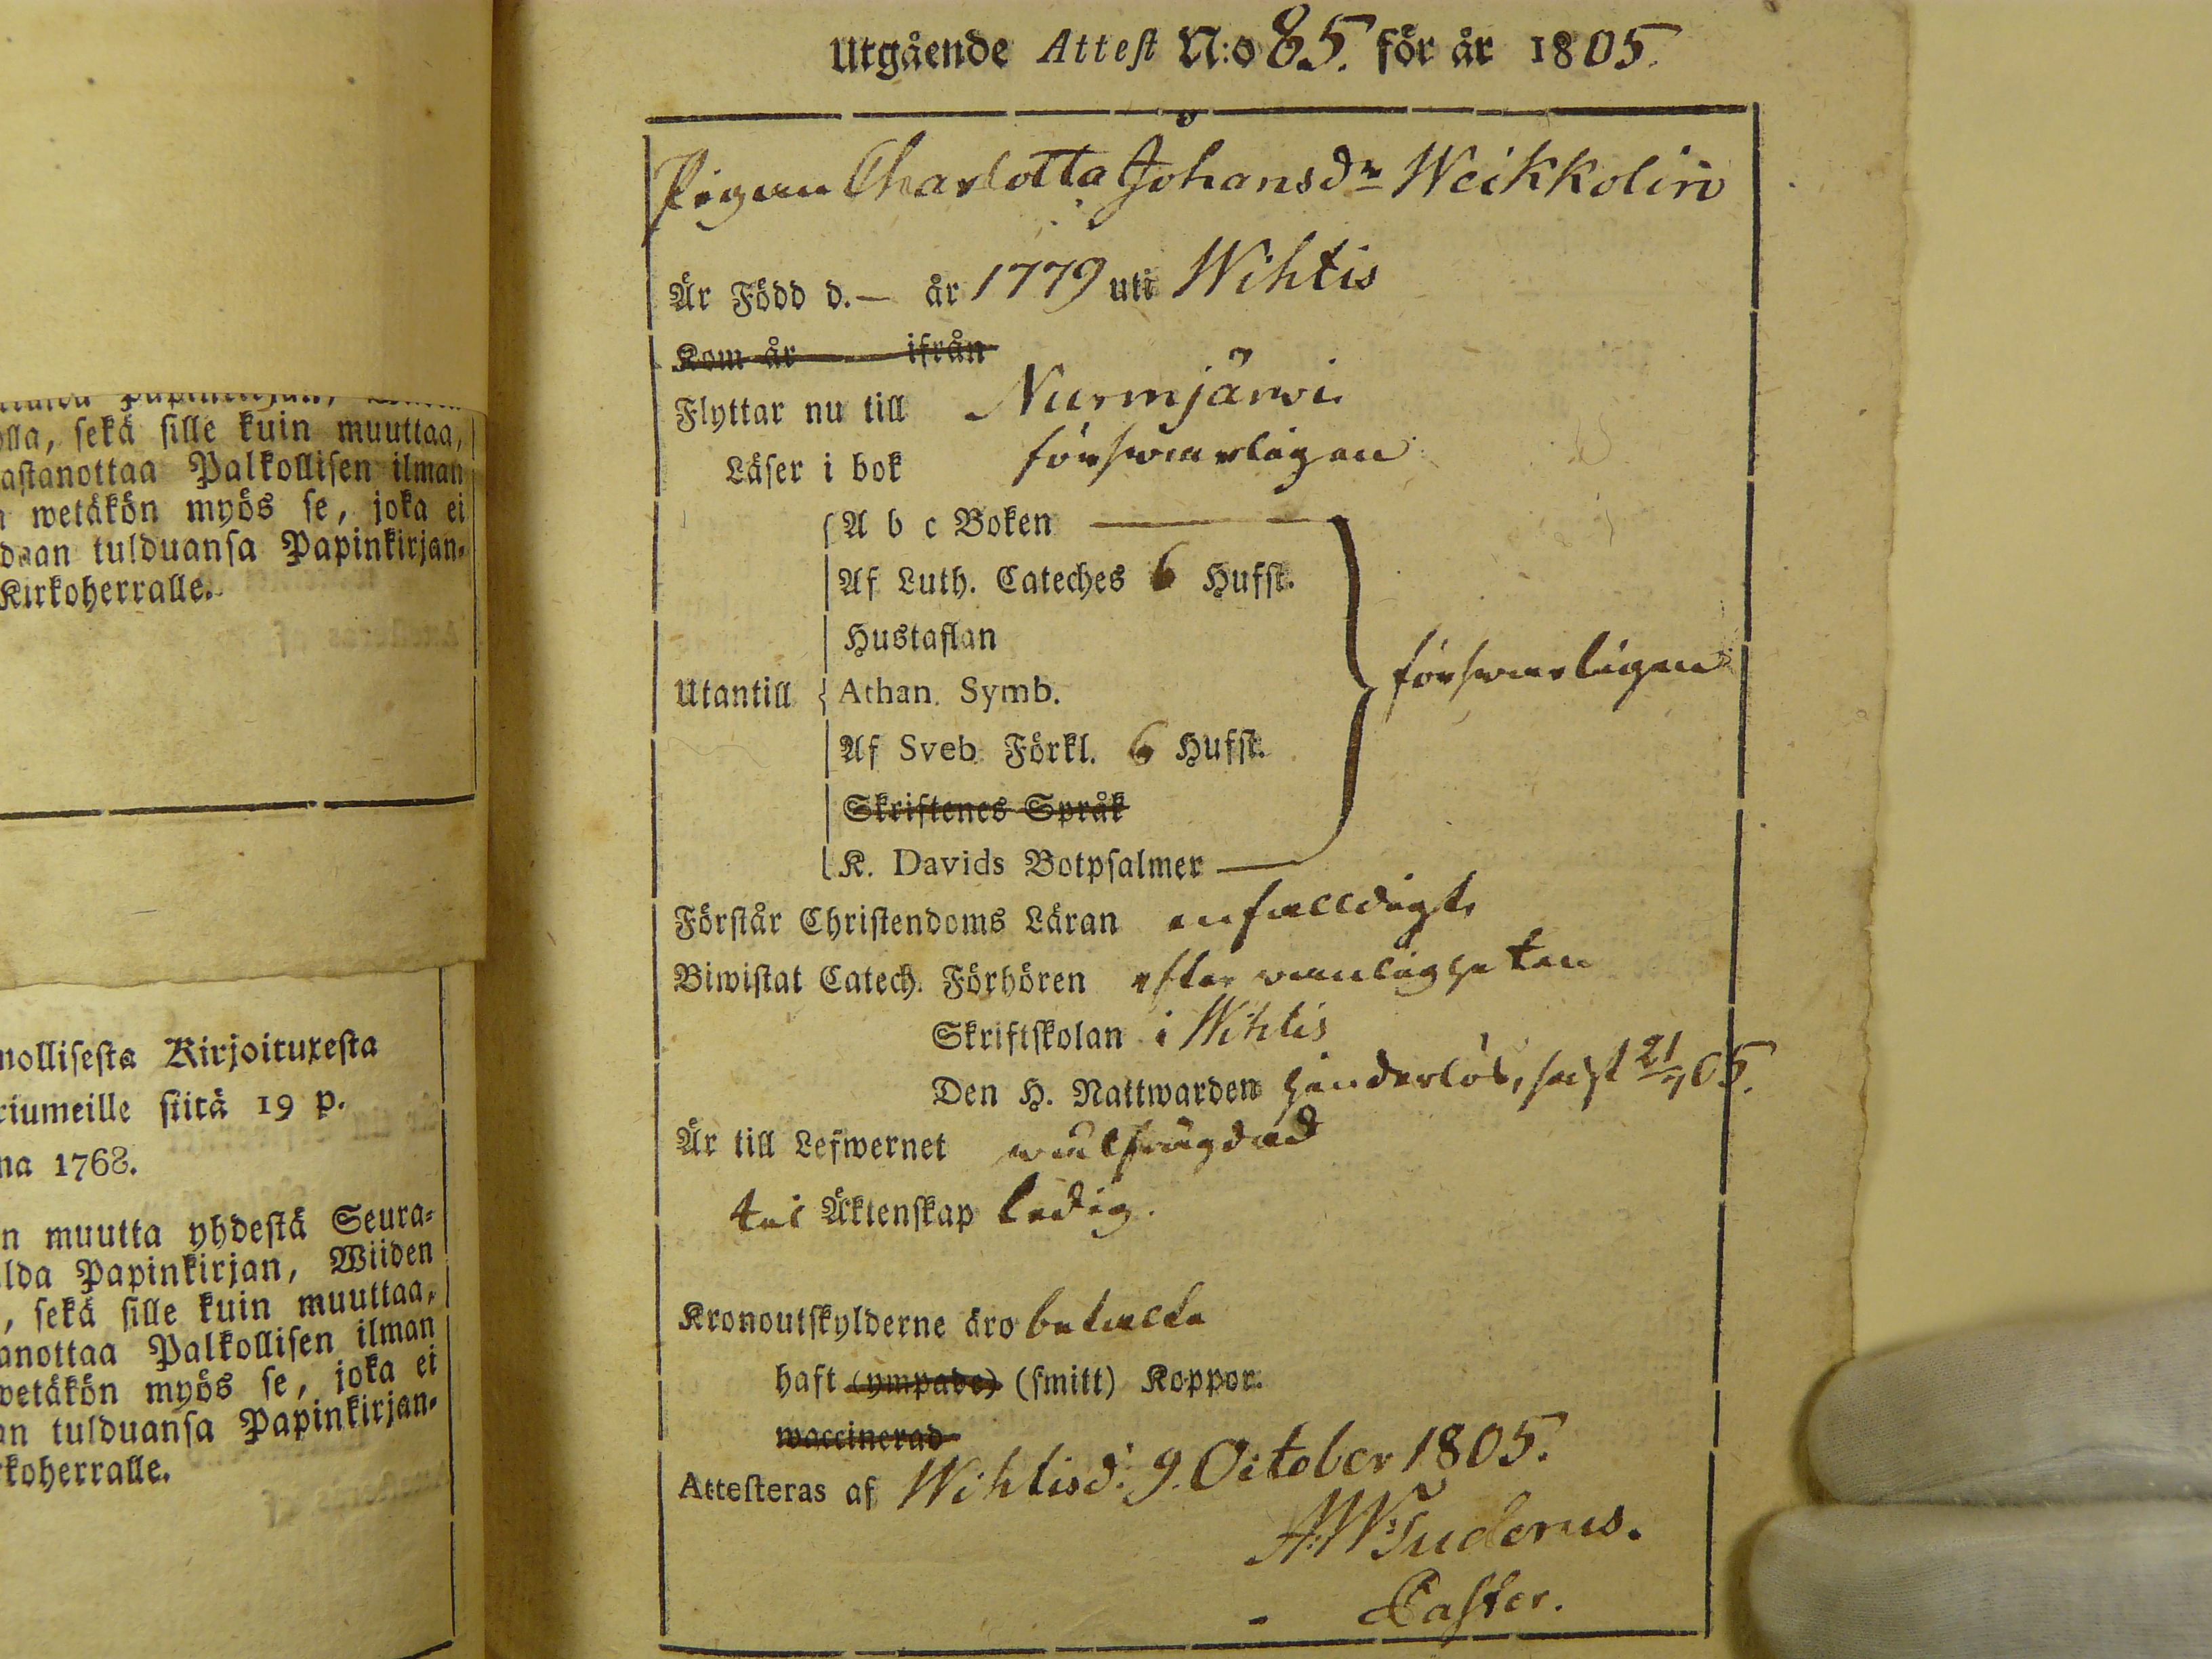 lla, sekä sille kuin muuttaa,
astanottaa Palkollisen ilman
wetäkön myös se, joka ei
daan tulduansa Papinkirjan-
Kirkoherralle.
nollisesta Kirjoituxesta
riumeille siitä 19 p.
na 1768.
n muutta yhdestä Seura-
lda Papinkirjan, Wiiden
, sekä sille kuin muuttaa,
anottaa Palkollisen ilman
wetäkön myös se, joka ei
an tulduansa Papinkirjan-
rkoherralle.
Utgående Attest N:o 85. för år 1805.
Pigan Charlotta Johansdr Weikkolin
Är Född d. — år 1779 uti Wihtis
Kom år ifrån
Flyttar nu till Nurmjärwi.
Läser i bok förswarligen
A b c Boken
Af Luth. Cateches 6 Hufst.
Hustaflan
Utantill Athan. Symb. förswarligen
Af Sveb. Förkl. 6 Hufst.
Skriftenes Språk
K. Davids Botpsalmer
Förstår Christendoms Läran enfalldigt.
Biwistat Catech. Förhören efter wanligheten
Skriftskolan i Wihtis
Den H. Nattwarden hinderlös, sidst 21/7 05.
Är till Lefwernet wälfrägdad
til Äktenskap ledig.
Kronoutskylderne äro betalte
haft (ympade) (smitt) Koppor.
waccinerad
Attesteras af Wihtis d. 9. October 1805.
Pastor.